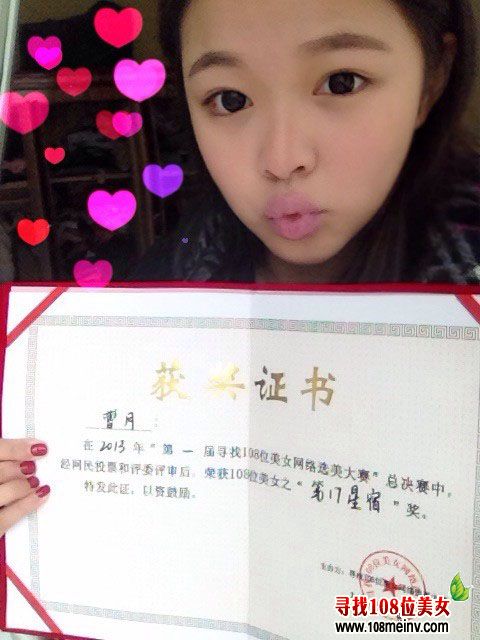 获奖证书
曹月：
在2013年“第一届寻找108位美女网络选美大赛”总决赛中，
经网民投票和评委评审后，荣获108位美女之“第17星宿”奖。
特发此证，以资鼓励。
主办方：寻找108位美女网络
寻找108位美女
www.108meinv.com